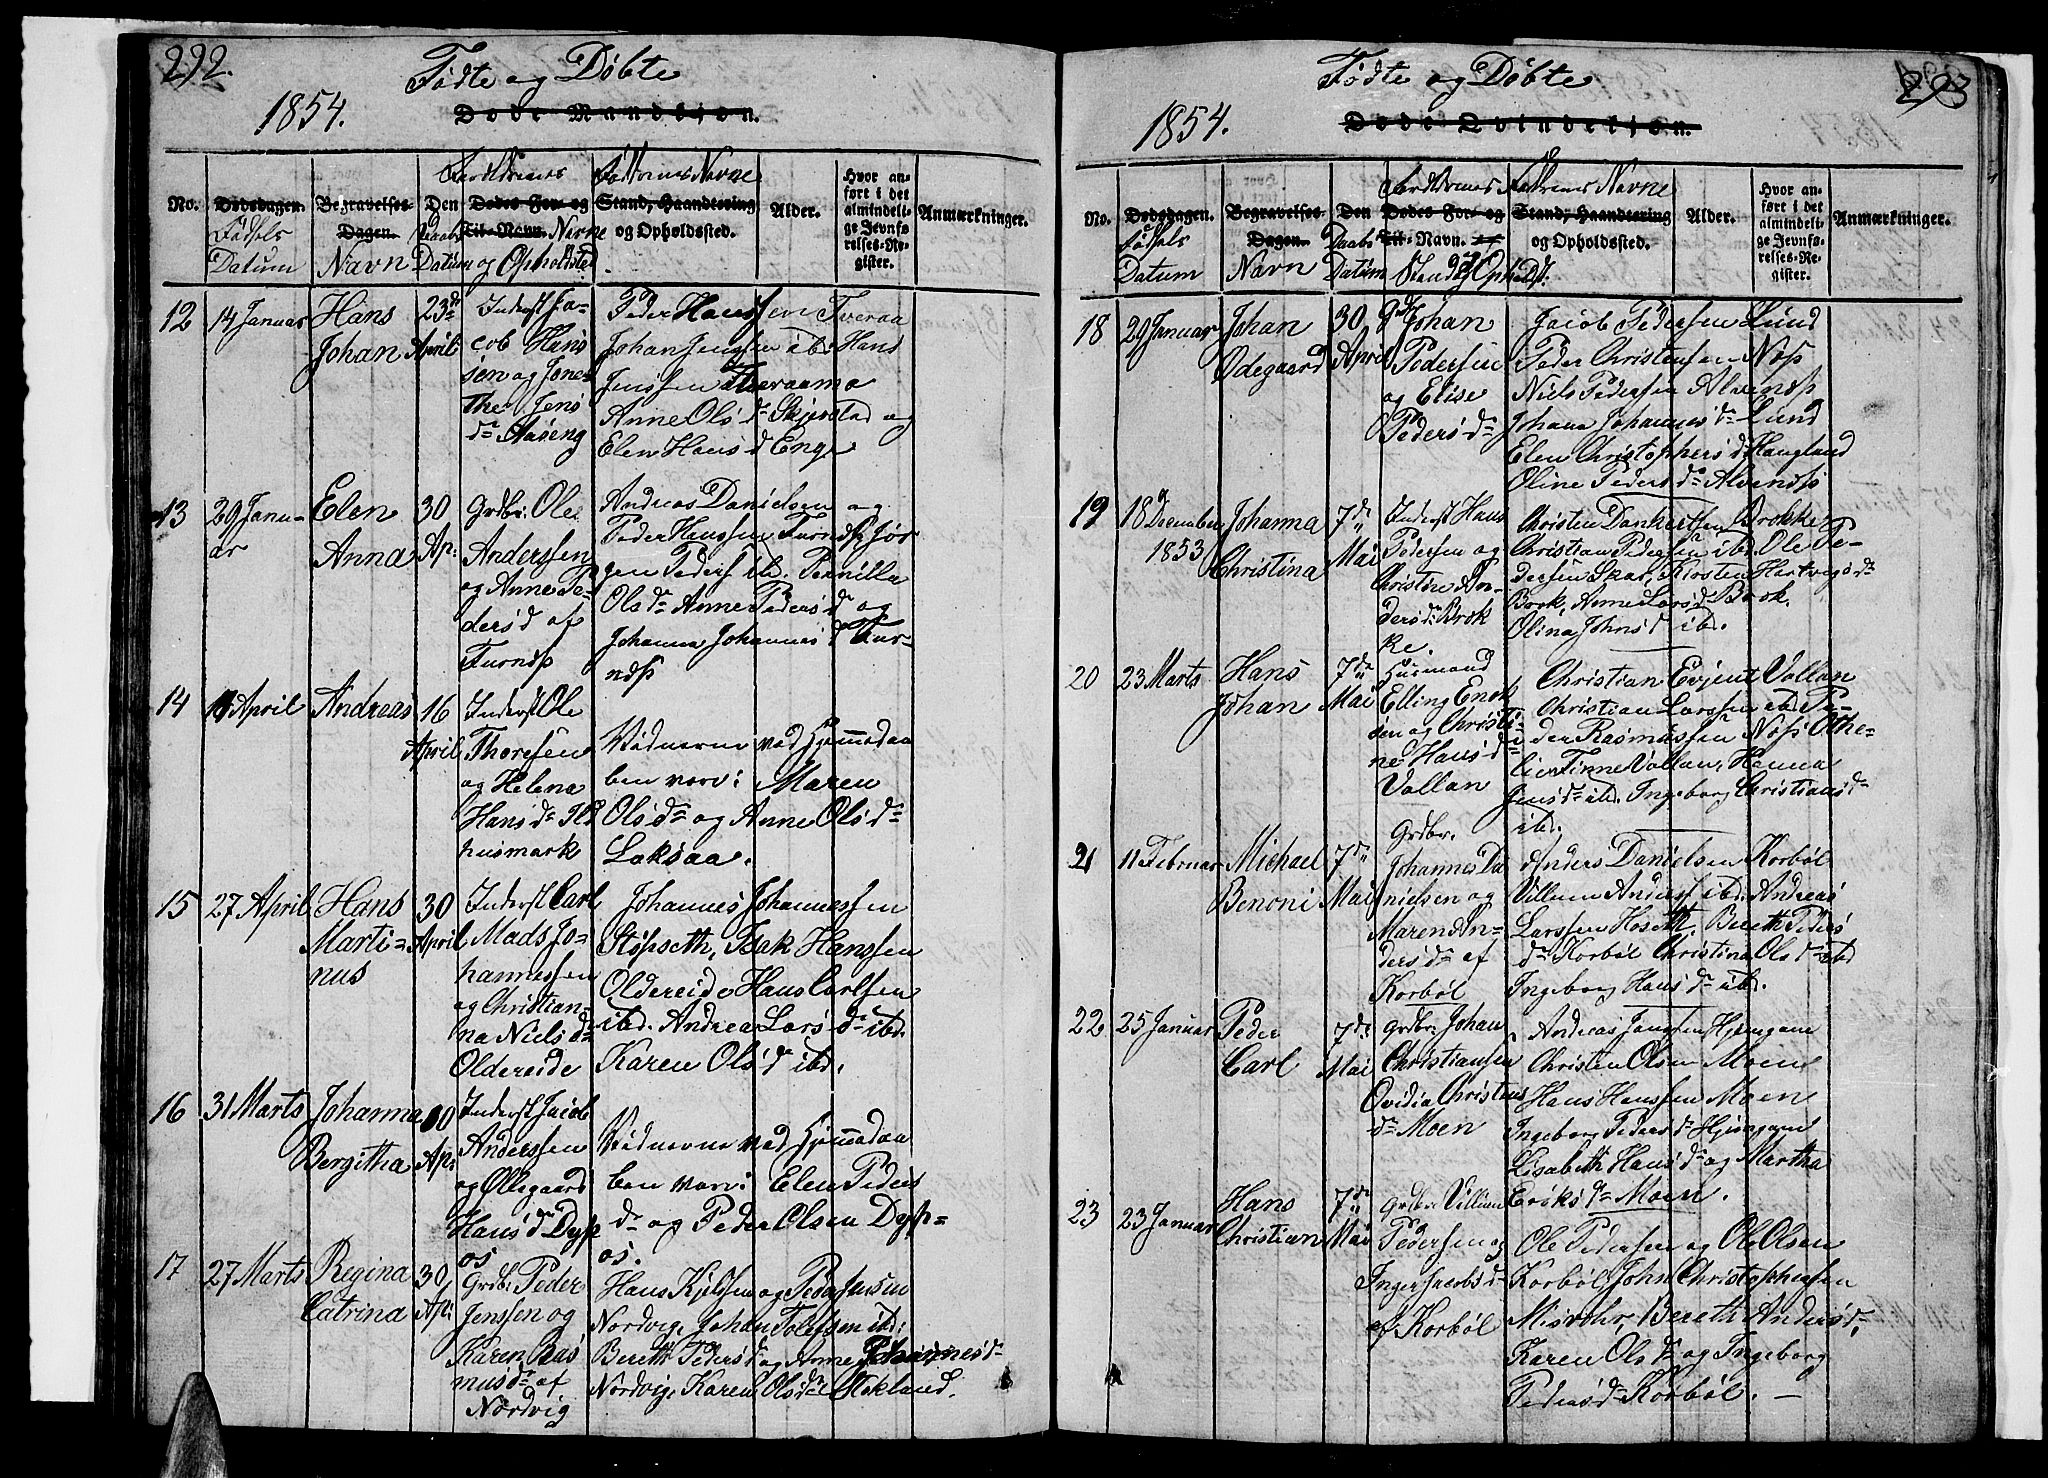 292.
Fødte og Døbte
1854.
Døde Mandkjøn.
No.
Dødsdagen.
Fødsels
Datum
Begravelses-
Dagen.
Navn
Den
Daabs
Datum
Forældrenes
Dødes For- og
Til-Navn. Navne
og Opholdsted
Faddernes Navne
Stand, Haandtering
og Opholdssted.
Alder.
Hvor an-
ført i det
almindeli-
ge Jevnfø-
relses-Re-
gister.
Anmærkninger.
12 14 Januar Hans Johan 23de April
Inderst Ja-
cob Hans
sen og Jone
Thea Jens
dr Aaseng
Peder Hanssen Tveraa
Johan Jenssen ibd Hans
Jenssen Tveraamo
Anne Olsdr Skjerstad og
Elen Hansd Enge
13 29 Janu-
ar
Elen
Anna
30
Ap:
Grdbr: Ole
Anderssen
og Anne Pe-
dersd af
Andreas Danielsen og
Peder Hanssen
Jør
gen Peders ibd. Pernilla
Olsdr Anne Pedersd og
Johanna Johannesd
14 April
Andreas
16
April
Inderst Ole
Thoresen
og Helena
Hansdr
husmark
Vidnerne ved Hjemmedaa
ben vare: Maren
Olsdr og Anne Olsdr
Laksaa.
15 27 April
Hans
Marti-
nus
30
April
Inderst Carl
Mads Jo-
hannessen
og Christian-
na Nielsd
Oldereide
Johannes Johannessen
Støpseth, Isak Hanssen
Oldereide Hans Carlsen
ibd. Andrea Larsdr ibd.
Karen Olsdr ibd.
16 31 Marts
Johanna
Bergitha
30
Ap:
Inderst Jacob
Anderssen
og Øllegaard
Hansdr Dyp
os
Vidnerne ved Hjemmedaa
ben vare: Elen Peders
dr og Peder Olsen Dyp-
os.
17 27 Marts
Regina
Catrina
30
Ap:
Grdbr: Peder
Jenssen og
Karen Ras
musdr af
Nordvig
Hans Kjelsen og Peder Jensen
Nordvig, Johan Tollefsen ibd:
Bereth Pedersd og Anne Johannesdr
Nordvig, Karen Olsdr Kokland.
293
Fødte og Døbte
1854.
Døde Qvindekjøn.
No.
Dødsdagen.
Fødsels
Datum
Begravelses-
Dagen.
Navn
Den
Daabs
Datum
Forældrenes
Dødes For- og
Til-Navn.
Faddernes Navne
Stand, Haandtering
og Opholdssted.
Alder.
Hvor an-
ført i det
almindeli-
ge Jevnfø-
relses-Re-
gister.
Anmærkninger.
18 29 Januar
Johan
Ødegaard
30
April
Johan
Pedersen
og Elise
Pedersdr
Jacob Pedersen Lund
Peder Christensen Næss
Niels Pedersen Alvenæss
Johana Johannesdr Lund
Elen Christophersdr Haugland
Oline Pedersdr Alvenæss
19 18 December
1853
Johanna
Christina
7de
Mai
Inderst Hans
Pedersen og
Christine An-
dersdr Brok
ke.
Christen Dankertsen Brokke
Christian Pedersen ibd. Ole Pe-
dersen Skar, Kirsten Hartvigsdr
Brok, Anne Larsd Brok.
Olina Johnsd ibd.
20 23 Marts
Hans
Johan
7de
Mai
Husmand
Elling Enok
sen og Christi-
ne Hansdr
Vollan
Christian Evjent Vollan
Christian Larssen ibd Pe-
der Rasmussen Næss Othe-
lie Finne Vollan, Hanna
Jensdr ibd. Ingeborg Christiansdr
ibd.
21 11 Februar
Michael
Benoni
7de
Mai
Grdbr.
Johannes Da
nielsen og
Maren An-
dersdr af
Korbøl
Anders Danielsen Korbøl
Villum Anders ibd Andreas
Larssen Hoseth, Bereth Peders
dr Korbøl Christina Olsdr ibd
Ingeborg Hansdr ibd.
22 25 Januar
Peder
Carl
7de
Mai
Grdbr: Johan
Christiansen
Ovidia Christens
dr Moen
Andreas Janssen Hjemgam
Christen Olsen Moen
Hans Hanssen Moen
Ingeborg Pedersdr Hjemgam
Lisabeth Hansdr og Martha
Eriksdr Moen.
23 23 Januar
Hans
Christian
7de
Mai
Grdbr Villum
Pedersen og
Inger Jacobsdr
af Korbøl
Ole Pedersen og Ole Olsen
Korbøl John Christophersen
Misvær, Bereth Andersdr,
Karen Olsdr og Ingeborg
Pedersdr Korbøl. —